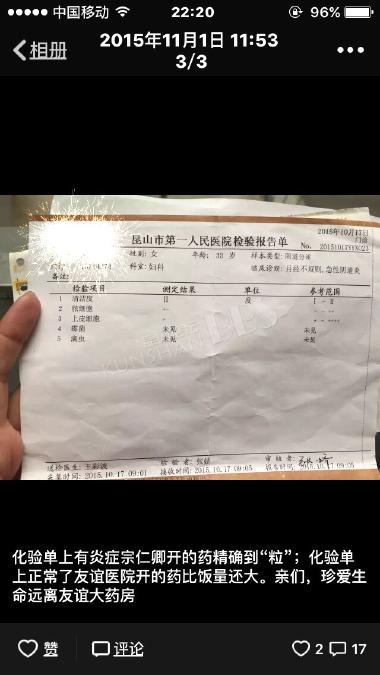 中国移动 22:20 96%
相册 2015年11月1日 11:53
3/3
昆山市第一人民医院检验报告单
2015年10月17日
门诊
No.
性别: 女 年龄: 33 岁 样本类型: 阴道分泌
科室: 妇科 临床诊断: 月经不规则,急性阴道炎
备注:
检验项目 测定结果 单位 参考范围
1 清洁度 II 度 I - II
2 脓细胞
3 上皮细胞
4 霉菌 未见 未见
5 滴虫 未见 未见
KUNSHAN
送检医生: 王彩波 检验者: 审核者:
采集时间: 2015.10.17 09:01 接收时间: 2015.10.17 09:05 报告时间: 2015.10.17 09:05
化验单上有炎症宗仁卿开的药精确到“粒”；化验单
上正常了友谊医院开的药比饭量还大。亲们，珍爱生
命远离友谊大药房
赞 评论 2 17